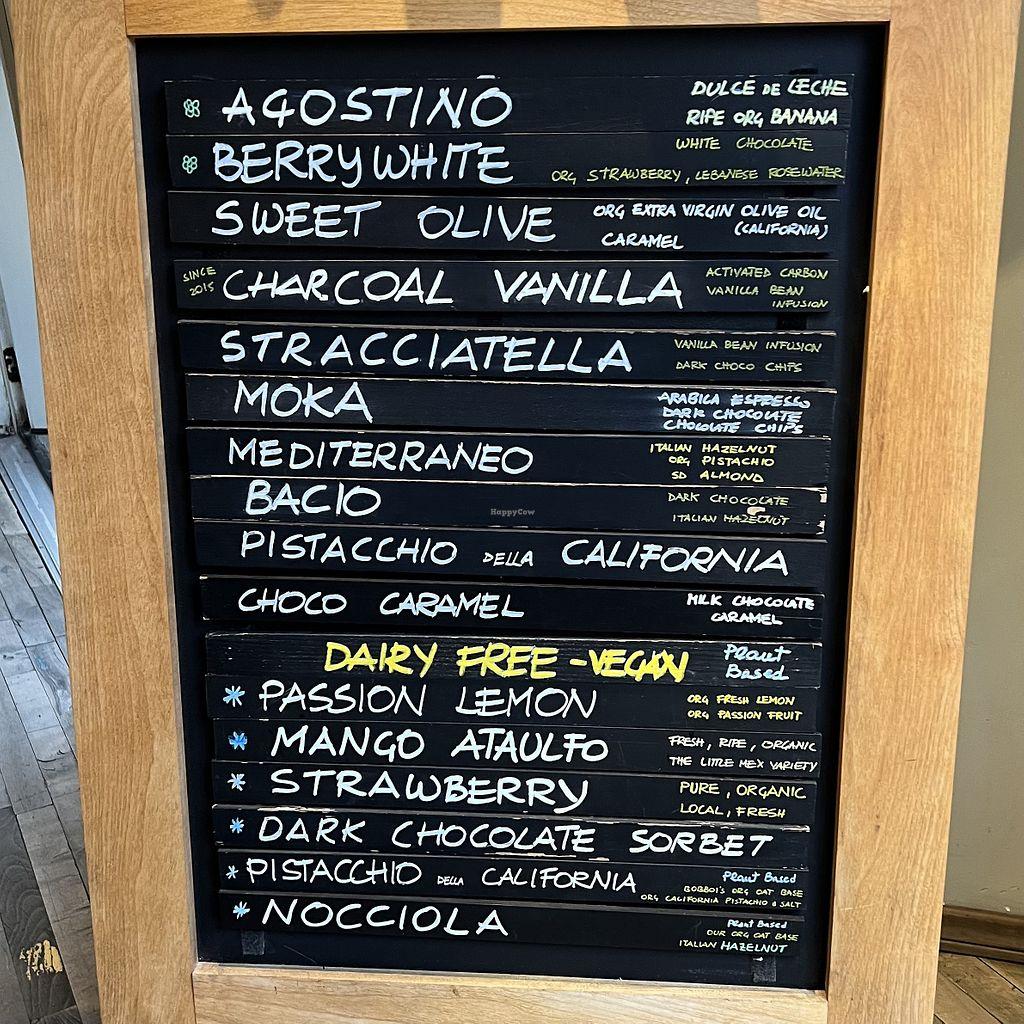 AGOSTINO DULCE DE LECHE
RIPE ORG BANANA
BERRYWHITE WHITE CHOCOLATE
ORG STRAWBERRY, LEBANESE ROSEWATER
SWEET OLIVE ORG EXTRA VIRGIN OLIVE OIL
(CALIFORNIA)
CARAMEL
SINCE 2015 CHARCOAL VANILLA ACTIVATED CARBON
VANILLA BEAN
INFUSION
STRACCIATELLA VANILLA BEAN INFUSION
DARK CHOCO CHIPS
MOKA ARABICA ESPRESSO
DARK CHOCOLATE
CHOCOLATE CHIPS
MEDITERRANEO ITALIAN HAZELNUT
ORG PISTACHIO
SD ALMOND
BACIO DARK CHOCOLATE
ITALIAN HAZELNUT
HappyCow
PISTACCHIO DELLA CALIFORNIA
CHOCO CARAMEL MILK CHOCOLATE
CARAMEL
DAIRY FREE - VEGAN Plant
Based
PASSION LEMON ORG FRESH LEMON
ORG PASSION FRUIT
MANGO ATAULFO FRESH, RIPE, ORGANIC
THE LITTLE MEX VARIETY
STRAWBERRY PURE, ORGANIC
LOCAL, FRESH
DARK CHOCOLATE SORBET
PISTACCHIO DELLA CALIFORNIA Plant Based
BOBBOI'S ORG OAT BASE
ORG CALIFORNIA PISTACHIO & SALT
NOCCIOLA Plant Based
OUR ORG OAT BASE
ITALIAN HAZELNUT